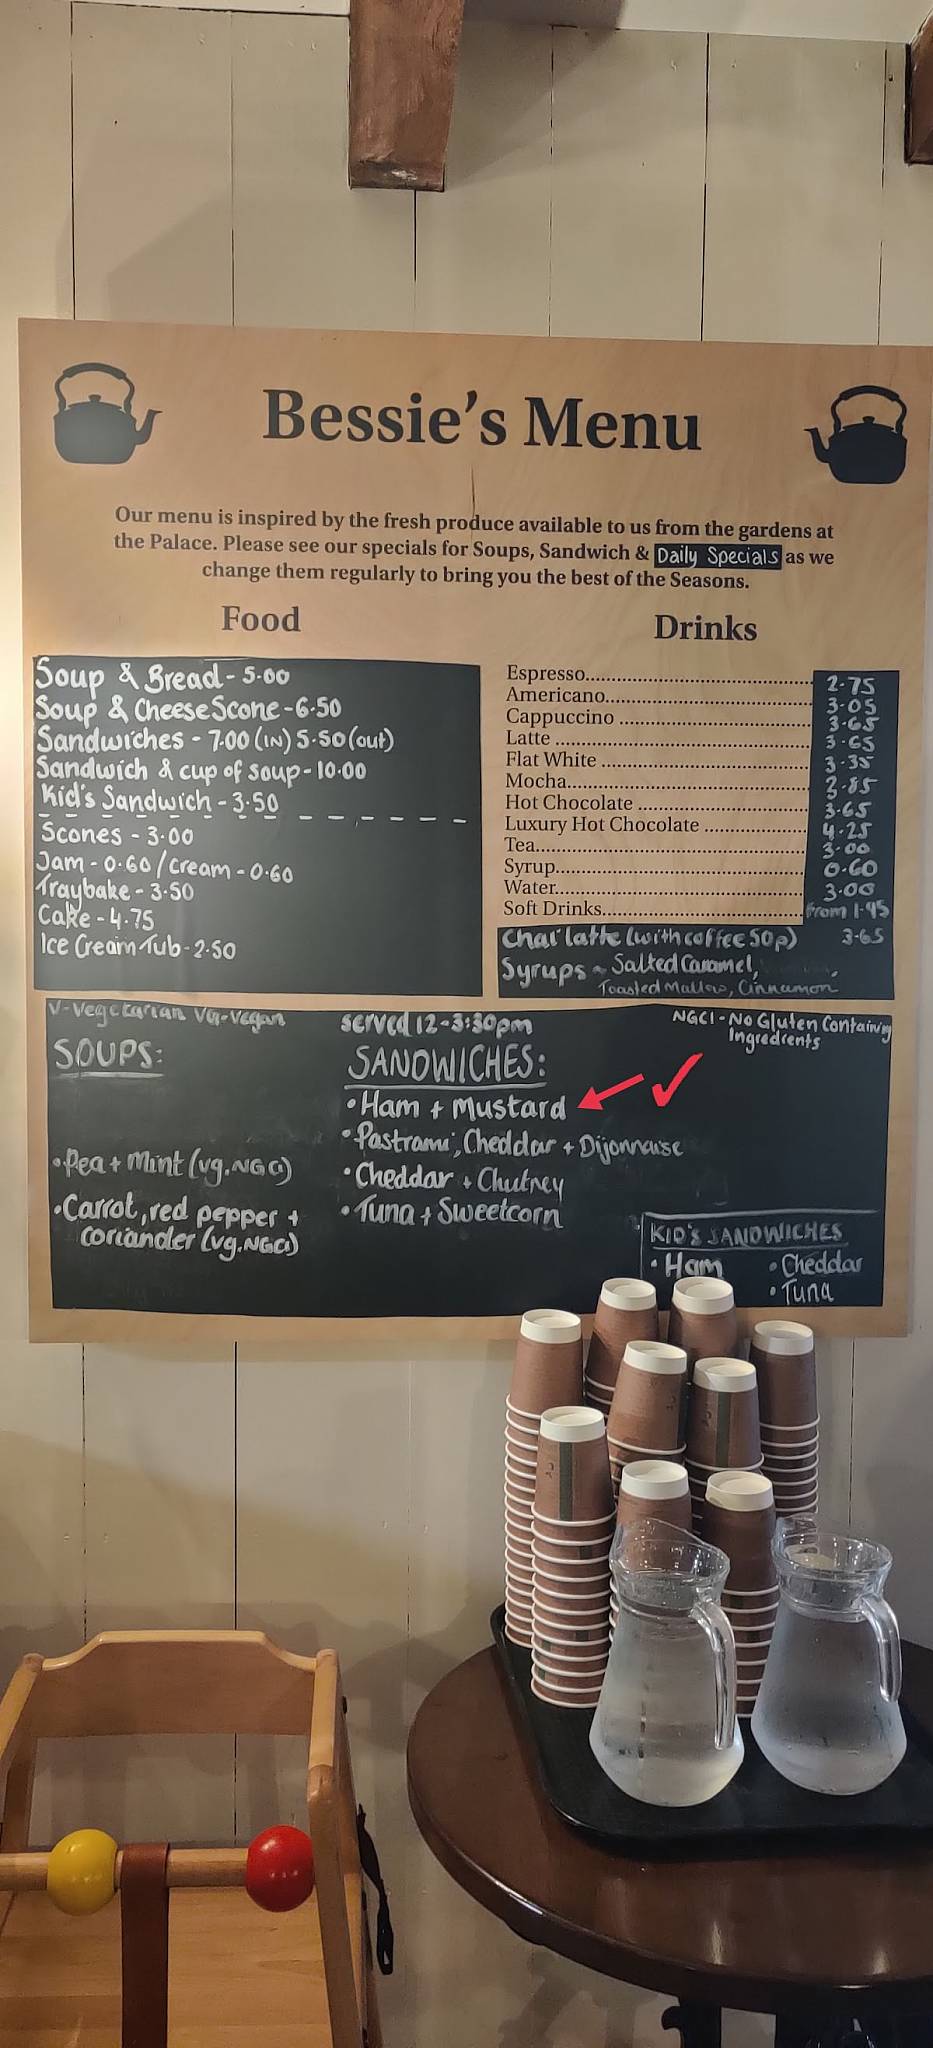 Bessie's Menu
Our menu is inspired by the fresh produce available to us from the gardens at
the Palace. Please see our specials for Soups, Sandwich & Daily Specials as we
change them regularly to bring you the best of the Seasons.
Food
Soup & Bread - 5.00
Soup & Cheese Scone - 6.50
Sandwiches - 7.00 (IN) 5.50 (out)
Sandwich & cup of soup - 10.00
Kid's Sandwich - 3.50
Scones - 3.00
Jam - 0.60 / Cream - 0.60
Traybake - 3.50
Cake - 4.75
Ice Cream Tub - 2.50
Drinks
Espresso 2.75
Americano 3.05
Cappuccino 3.65
Latte 3.65
Flat White 3.35
Mocha 3.85
Hot Chocolate 3.65
Luxury Hot Chocolate 4.25
Tea 3.00
Syrup 0.60
Water 3.00
Soft Drinks from 1.95
Chai latte (with coffee 50p) 3.65
Syrups ~ Salted Caramel,
Toasted Mallow, Cinnamon
V-Vegetarian VG-Vegan
served 12-3:30pm
NGCI - No Gluten Containing
Ingredients
SOUPS:
• Pea + Mint (vg.NGCI)
• Carrot, red pepper +
coriander (vg.NGCI)
SANDWICHES:
• Ham + Mustard
• Pastrami, Cheddar + Dijonnaise
• Cheddar + Chutney
• Tuna + Sweetcorn
KID'S SANDWICHES
• Ham • Cheddar
• Tuna